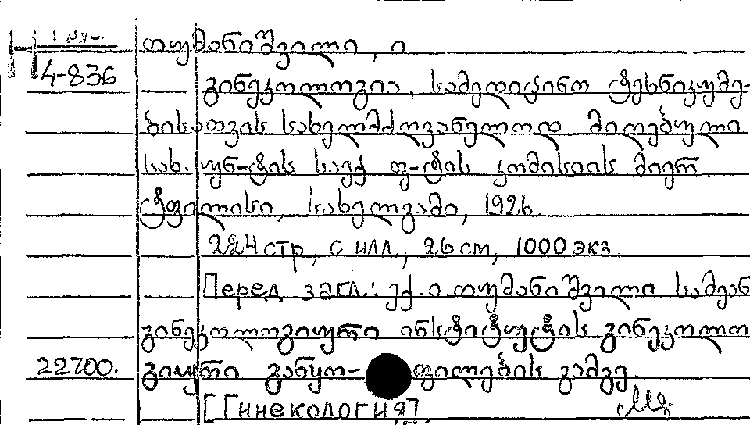 თუმანიშვილი, ი
4-836
გინეკოლოგია, სამედიცინო ტეხნიკუმე-
ბისათვის სახელმძღვანელოდ მიღებული
სახ. უნ-ტის საექ. ფ-ტის კომისიის მიერ
ტფილისი, სახელგამი, 1926.
224 стр, с илл., 26 см, 1000 экз.
Перед загл.: ექ. ი თუმანიშვილი სამეან
გინეკოლოგიური ინსტიტუტის გინეკოლო
22700. გიური განყო-ფილების გამგე.
[Гинекология]